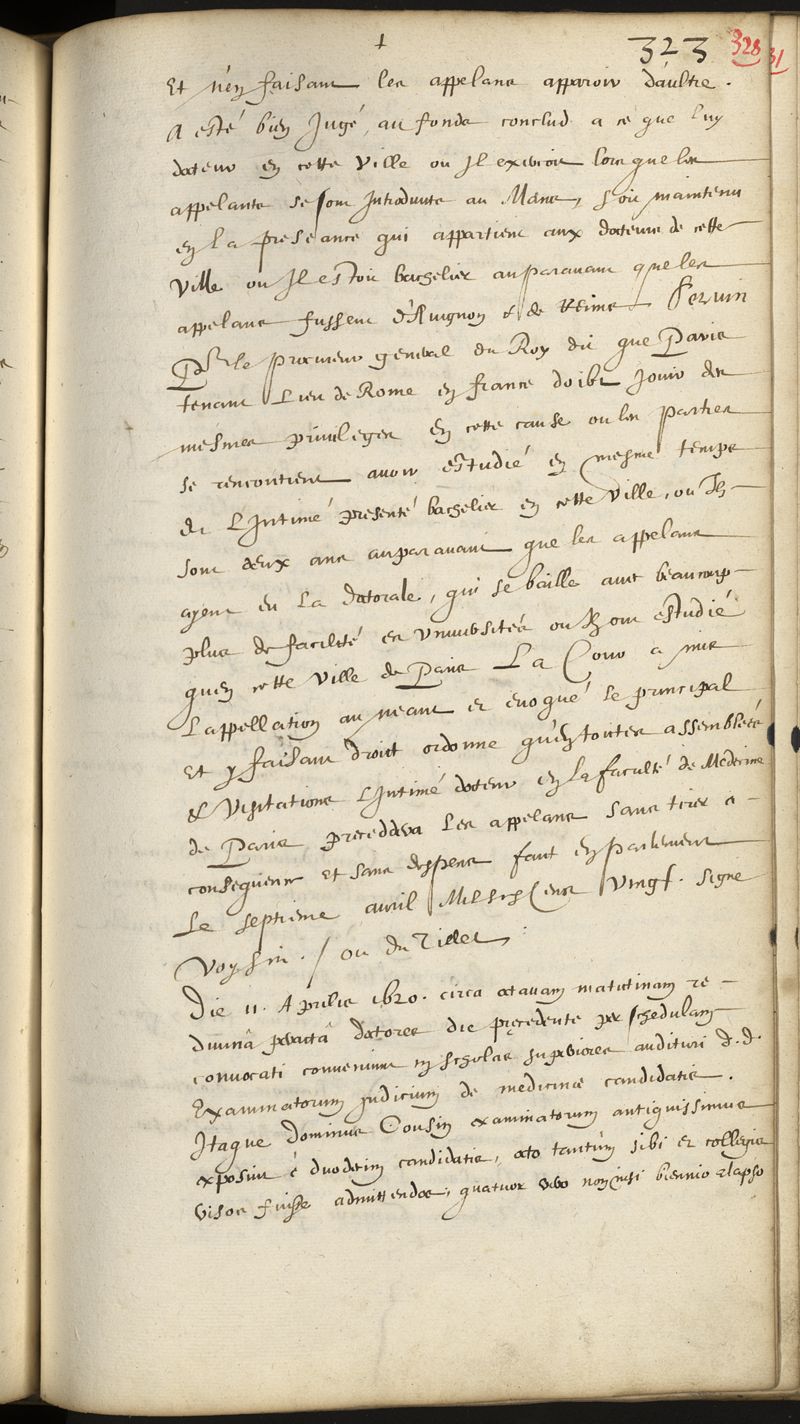 323 328
31
Et n'en faisant les appelans apparoir d'aultre.
A esté bien Jugé, au fonds conclud a ce que luy
docteur en cette Ville ou Il exercoit lors que les
appelants se sont Introduits au Mans, soit maintenu
en la preseance qui appartient aux docteurs de cette
Ville ou Il estoit bachelier auparavant que les
appelans fussent d'Avignon et de Reims. Servin
Pr le procureur general du Roy dit que Paris
tenant Lieu de Rome en france doibt Jouir des
mesmes privileges en cette cause ou les parties
se rencontrent avoir estudié en mesme temps
et L'Intimé presenté bachelier en cette Ville, ou Ilz
sont deux ans auparavant que les appelans
ayent eu la doctorale, qui se baille avec beaucoup
plus de facilité es Universités ou Ilz ont estudié
qu'en cette Ville de Paris La Cour a mis
L'appellation au neant et evoqué le principal
Et y faisant droict ordonne qu'en toutes assemblées
et Visitations L'Intimé docteur en la faculté de Medecine
de Paris precedera les appelans sans tirer a
consequence et sans despens fait en parlement
Le septieme avril Mil six cens Vingt. signe
Voysin. / ou du Tillet.
Die 11. Aprilis 1620. circa octavam matutinam re
divinâ peractâ doctores die præcedente per schedulam
convocati convenerunt in scholas superiores audituri d.d.
Examinatorum judicium de medicinæ candidatis.
Itaque Dominus Cousin examinatorum antiquissimus
exposuit è duodecim candidatis, octo tantùm sibi et collegis
visos fuisse admittendos, quatuor vero non nisi biennio elapso